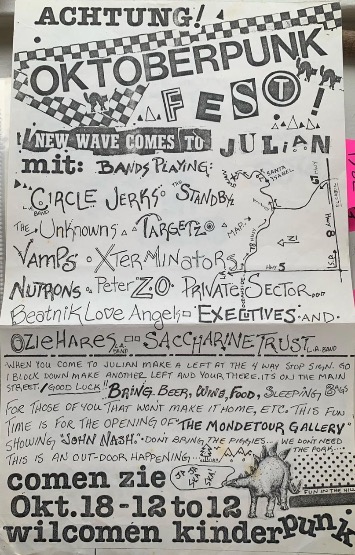 ACHTUNG!
OKTOBERPUNK
FEST!
NEW WAVE COMES TO JULIAN
mit: BANDS PLAYING:
CIRCLE JERKS THE STANDBYS
THE UNKNOWNS TARGETZ
VAMPS XTERMINATORS
NUTRONS PETER ZO PRIVATE SECTOR...
BEATNIK LOVE ANGELS EXECUTIVES AND.
OZIEHARES L.A. BAND SACCHARINE TRUST L.A. BAND
WHEN YOU COME TO JULIAN MAKE A LEFT AT THE 4 WAY STOP SIGN. GO
1 BLOCK DOWN MAKE ANOTHER LEFT AND YOUR THERE. IT'S ON THE MAIN
STREET. GOOD LUCK!! BRING. BEER, WINE, FOOD, SLEEPING, BAGS
FOR THOSE OF YOU THAT WON'T MAKE IT HOME, ETC. THIS FUN
TIME IS FOR THE OPENING OF "THE MONDETOUR GALLERY"
SHOWING, "JOHN NASH". DON'T BRING THE PIGGIES... WE DON'T NEED
THIS IS AN OUT-DOOR HAPPENING. THE PORK...
comen zie
FUN IN THE HILLS
Okt. 18 - 12 to 12
wilcomen kinderpunk
SANTA YSABEL
MAP.
HWY 8
S.D.